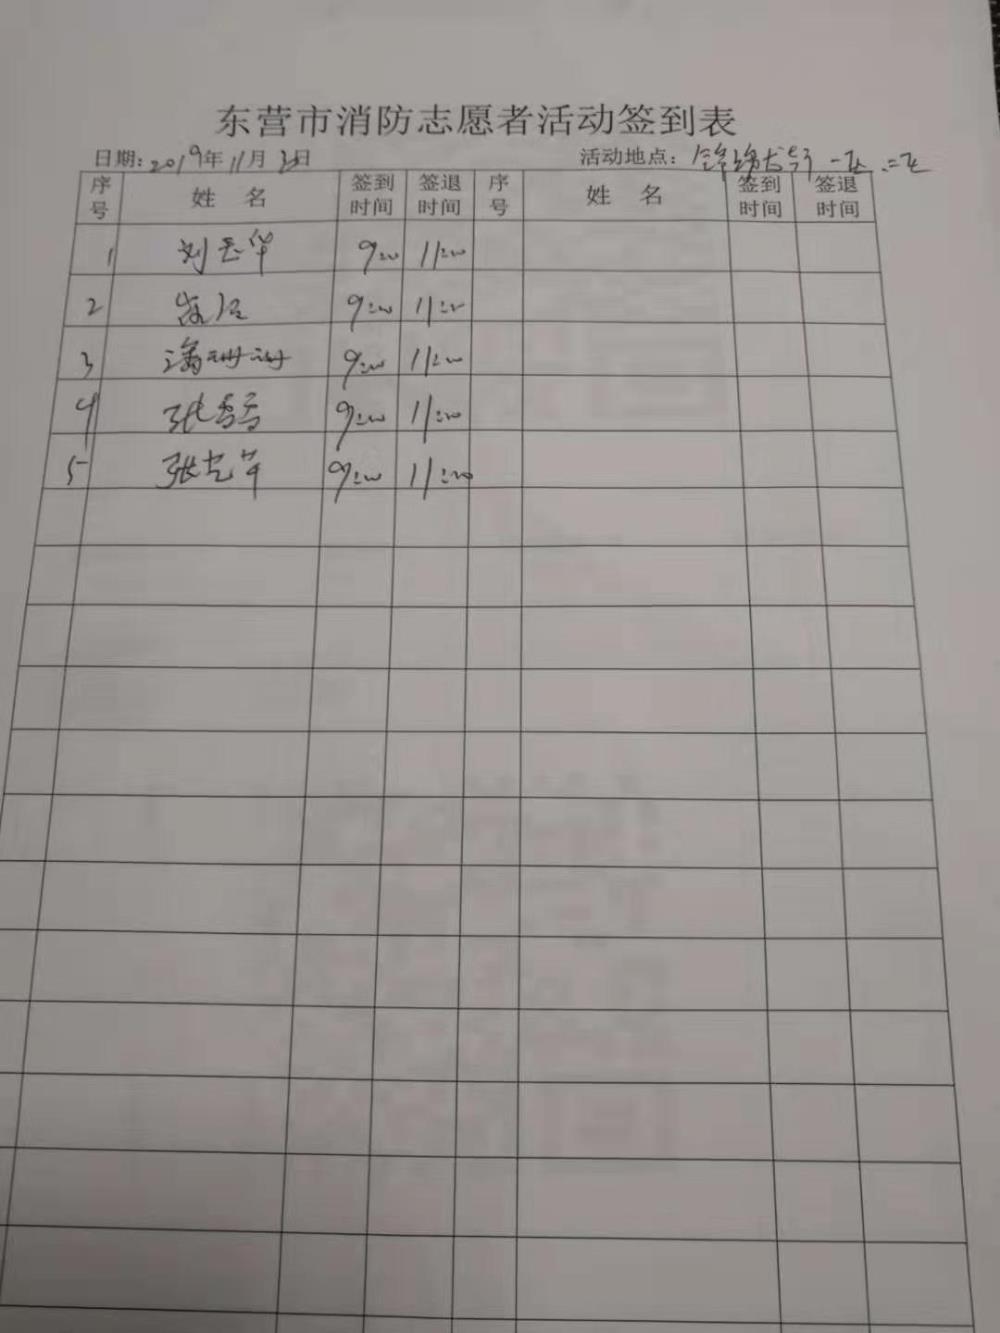 东营市消防志愿者活动签到表
日期:2019年11月30日 活动地点: 一区、二区
序号 姓 名 签到时间 签退时间 序号 姓 名 签到时间 签退时间
1 刘 华 9:20 11:20
2 9:20 11:20
3 潘珊珊 9:20 11:20
4 张雪雪 9:20 11:20
5 张 9:20 11:20